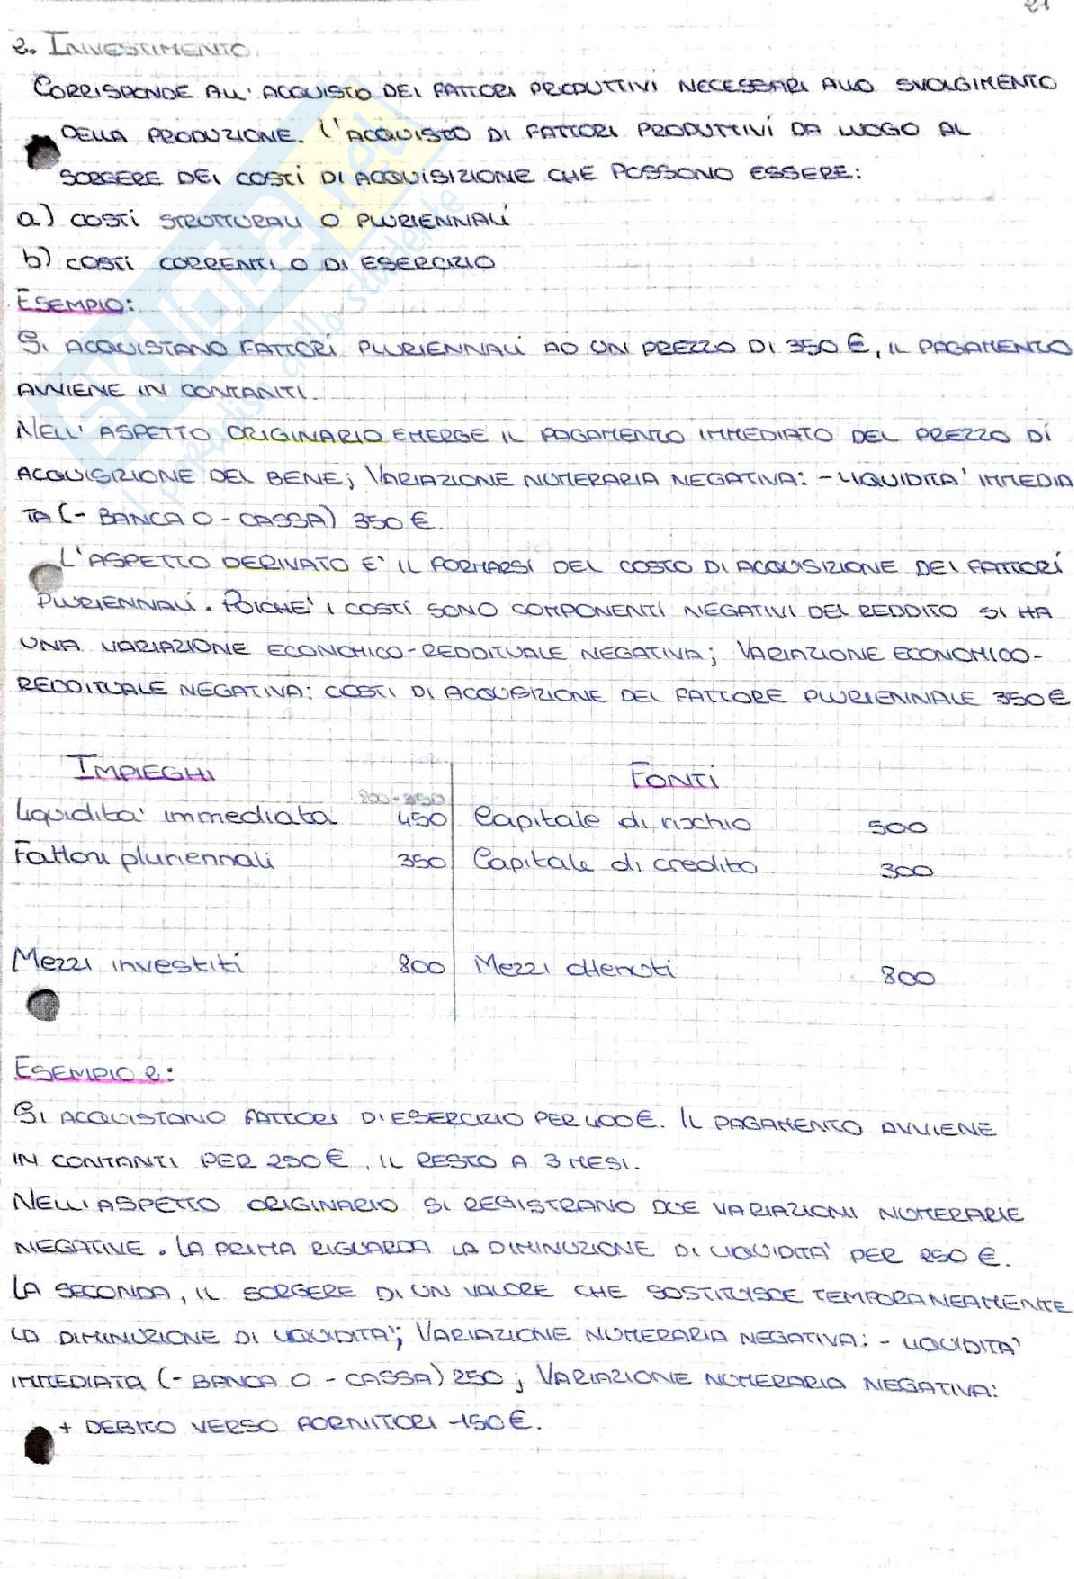 21
2. INVESTIMENTO.
CORRISPONDE ALL'ACQUISTO DEI FATTORI PRODUTTIVI NECESSARI ALLO SVOLGIMENTO
DELLA PRODUZIONE. L'ACQUISTO DI FATTORI PRODUTTIVI DA LUOGO AL
SORGERE DEI COSTI DI ACQUISIZIONE CHE POSSONO ESSERE:
a) COSTI STRUTTURALI O PLURIENNALI
b) COSTI CORRENTI O DI ESERCIZIO
ESEMPIO:
SI ACQUISTANO FATTORI PLURIENNALI AD UN PREZZO DI 350 €, IL PAGAMENTO
AVVIENE IN CONTANTI.
NELL'ASPETTO ORIGINARIO EMERGE IL PAGAMENTO IMMEDIATO DEL PREZZO DI
ACQUISIZIONE DEL BENE; VARIAZIONE NUMERARIA NEGATIVA: - LIQUIDITA' IMMEDIA
TA (- BANCA O - CASSA) 350 €
L'ASPETTO DERIVATO E' IL FORMARSI DEL COSTO DI ACQUISIZIONE DEI FATTORI
PLURIENNALI. POICHE' I COSTI SONO COMPONENTI NEGATIVI DEL REDDITO SI HA
UNA VARIAZIONE ECONOMICO-REDDITUALE NEGATIVA; VARIAZIONE ECONOMICO-
REDDITUALE NEGATIVA: COSTI DI ACQUISIZIONE DEL FATTORE PLURIENNALE 350€
IMPIEGHI FONTI
800-350
Liquidita' immediata 450 Capitale di rischio 500
Fattori pluriennali 350 Capitale di credito 300
Mezzi investiti 800 Mezzi ottenuti 800
ESEMPIO 2:
SI ACQUISTANO FATTORI D'ESERCIZIO PER 400€. IL PAGAMENTO AVVIENE
IN CONTANTI PER 250 €, IL RESTO A 3 MESI.
NELL'ASPETTO ORIGINARIO SI REGISTRANO DUE VARIAZIONI NUMERARIE
NEGATIVE. LA PRIMA RIGUARDA LA DIMINUZIONE DI LIQUIDITA' PER 250 €.
LA SECONDA, IL SORGERE DI UN VALORE CHE SOSTITUISCE TEMPORANEAMENTE
LA DIMINUZIONE DI LIQUIDITA'; VARIAZIONE NUMERARIA NEGATIVA: - LIQUIDITA'
IMMEDIATA (- BANCA O - CASSA) 250; VARIAZIONE NUMERARIA NEGATIVA:
+ DEBITO VERSO FORNITORI -150€.